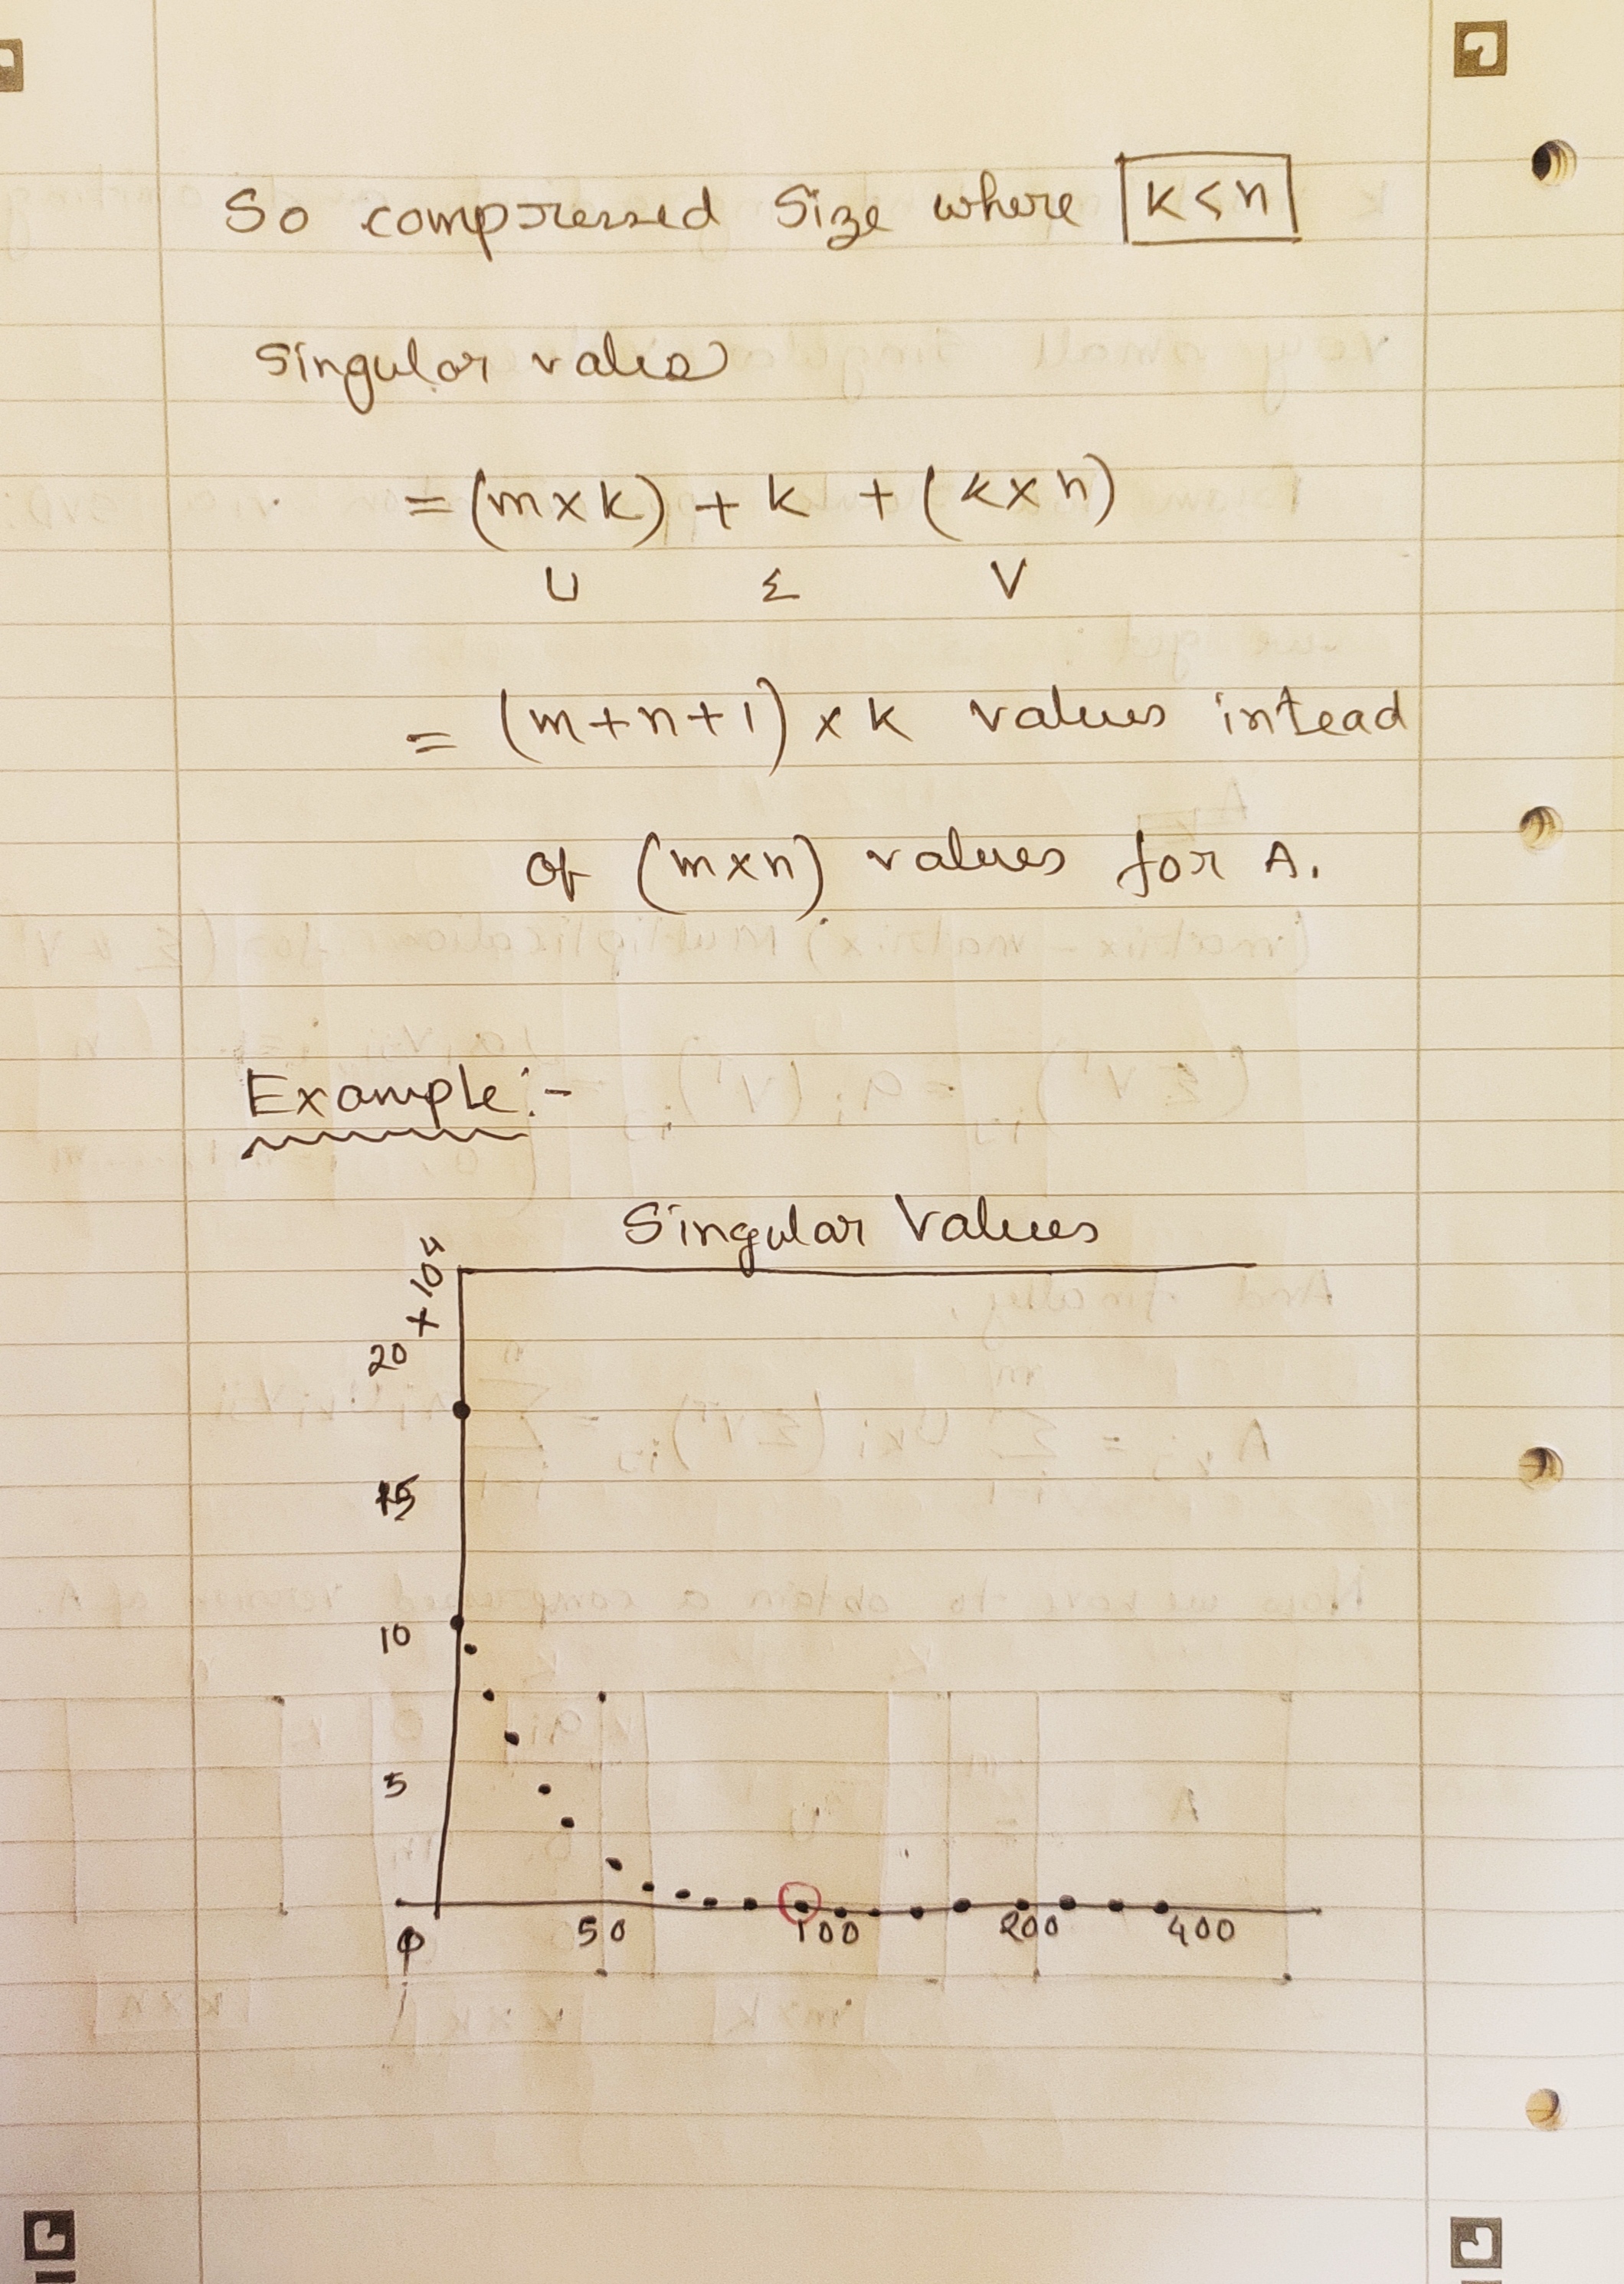 So compressed Size where K<n
Singular vales
= (m×k) + k + (k×n)
U Σ V
= (m+n+1) × k values intead
of (m×n) values for A.
Example:-
Singular Values
× 10⁴
20
15
10
5
0 50 100 200 400